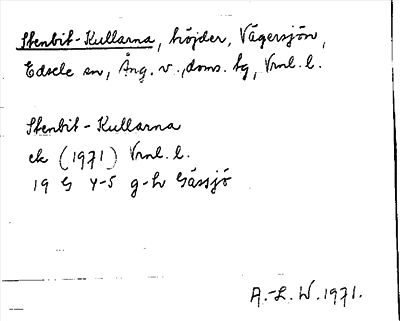 Stenbit-Kullarna, höjder, Vägersjön,
Edsele sn, Ång. v., doms. tg, Vrnl. l.
Stenbit-Kullarna
ek (1971) Vrnl. l.
19 G 4-5 g-h Gässjö
A.-L. W. 1971.